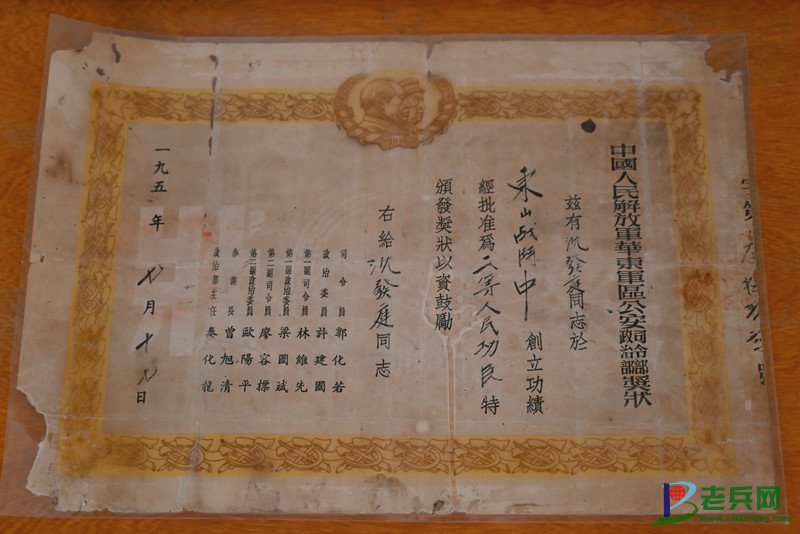 中國人民解放軍華東軍區公安司令部政治部獎狀
茲有沈發庭同志於
東山战鬥中創立功績
經批准爲二等人民功臣特
頒發獎狀以資鼓勵
右給沈發庭同志
司令員郭化若
政治委員許建國
第一副司令員林維先
第一副政治委員梁國斌
第二副司令員廖容標
第二副政治委員歐陽平
參謀長曾旭清
政治部主任秦化龍
一九五 年 九月十九日
老兵网
www.laobingzg.com